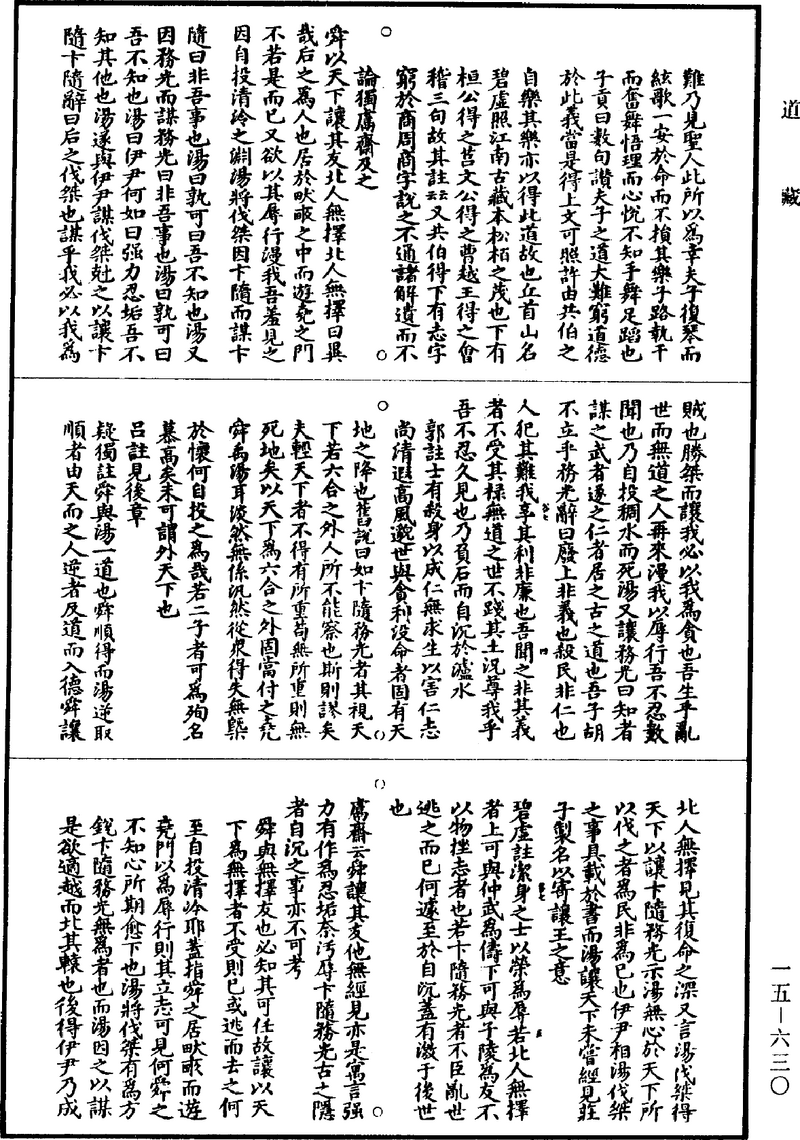 道藏
難乃見聖人此所以為幸夫子復琴而
絃歌一安於命而不損其樂子路執干
而奮舞悟理而心悅不知手舞足蹈也
子貢曰數句讚夫子之道大難窮道德
於此我當是得上文可照許由共伯之
自樂其樂亦以得此道故也丘首山名
碧虛照江南古藏本松栢之茂也下有
桓公得之莒文公得之曹越王得之會
稽三句故其註云又共伯得下有志字
窮於商周商字說之不通諸解遺而不
論獨鬳齋及之
舜以天下讓其友北人無擇北人無擇曰異
哉后之為人也居於畎畝之中而遊堯之門
不若是而已又欲以其辱行漫我吾羞見之
因自投清泠之淵湯將伐桀因卞隨而謀卞
隨曰非吾事也湯曰孰可曰吾不知也湯又
因務光而謀務光曰非吾事也湯曰孰可曰
吾不知也湯曰伊尹何如曰强力忍垢吾不
知其他也湯遂與伊尹謀伐桀尅之以讓卞
隨卞隨辭曰后之伐桀也謀乎我必以我為
賊也勝桀而讓我必以我為貪也吾生乎亂
世而無道之人再來漫我以辱行吾不忍數
聞也乃自投稠水而死湯又讓務光曰知者
謀之武者遂之仁者居之古之道也吾子胡
不立乎務光辭曰廢上非義也殺民非仁也
人犯其難我享其利非廉也吾聞之非其義
者不受其祿無道之世不踐其土況尊我乎
吾不忍久見也乃負石而自沉於瀘水
郭註士有殺身以成仁無求生以害仁志
尚清遐高風邈世與貪利没命者固有天
地之降也舊說曰如卞隨務光者其視天
下若六合之外人所不能察也斯則謬矣
夫輕天下者不得有所重苟無所重則無
死地矣以天下為六合之外固當付之堯
舜禹湯耳淡然無係汎然從衆得失無槩
於懷何自投之為哉若二子者可為殉名
慕高矣未可謂外天下也
吕註見後章
疑獨註舜與湯一道也舜順得而湯逆取
順者由天而之人逆者反道而入德舜讓
北人無擇見其復命之深又言湯伐桀得
天下以讓卞隨務光示湯無心於天下所
以伐之者為民非為已也伊尹相湯伐桀
之事具載於書而湯讓天下未嘗經見莊
子製名以寄讓王之意
碧虛註潔身之士以榮為辱若北人無擇
者上可與仲武為儔下可與子陵為友不
以物挫志者也若卞隨務光者不臣亂世
逃之而已何遽至於自沉蓋有激于後世
也
鬳齋云舜讓其友他無經見亦是寓言强
力有作為忍垢奈汚辱卞隨務光古之隱
者自沉之事亦不可考
舜與無擇友也必知其可任故讓以天
下為無擇者不受則已或逃而去之何
至自投清泠耶蓋指舜之居畎畝而遊
堯門以為辱行則其立志可見何舜之
不知心所期愈下也湯將伐桀有為方
銳卞隨務光無為者也而湯因之以謀
是欲適越而北其轅也後得伊尹乃成
一五—六三〇